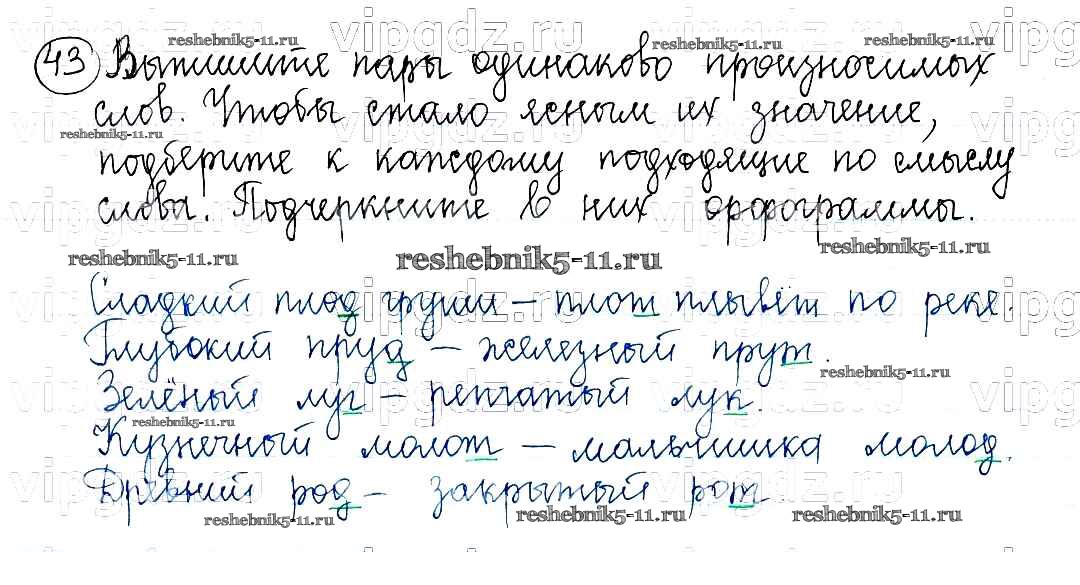 43 Выпишите пары одинаково произносимых
слов. Чтобы стало ясным их значение,
подберите к каждому подходящие по смыслу
слова. Подчеркните в них орфограммы.
Сладкий плод груши – плот плывёт по реке.
Глубокий пруд – железный прут.
Зелёный луг – репчатый лук.
Кузнечный молот – мальчишка молод.
Древний род – закрытый рот
vipgdz.ru
reshebnik5-11.ru